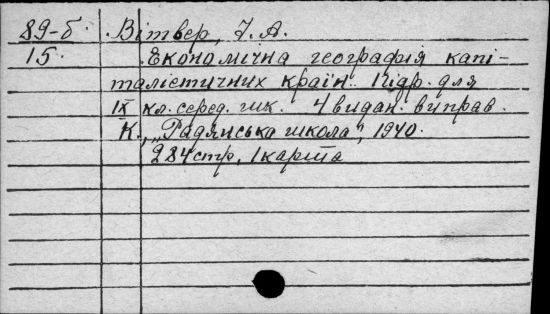 89-б. Вітвер, І. А.
15. Економічна географія капі-
талістичних країн. Підр. для
IX кл. серед. шк. 4 видан. виправ.
К., "Радянська школа", 1940.
284 стр, 1 карта